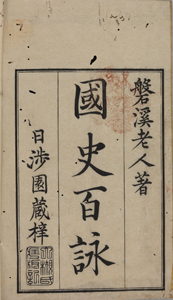 磐溪老人著
國史百詠
日渉園蔵梓